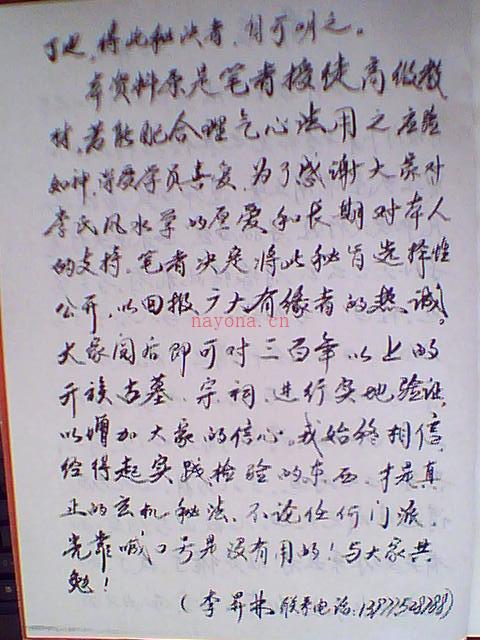 了也，得此秘诀者，自可明之。
本资料原是笔者授徒高级教
材，若能配合理气心法用之应验
如神，深受学员喜爱，为了感谢大家对
李氏风水学的厚爱和长期对本人
的支持，笔者决定将此秘旨选择性
公开，以回报广大有缘者的热诚。
nayona.cn
大家阅后即可对三百年以上的
开族古墓、宗祠、进行实地验证，
以增加大家的信心。我始终相信，
经得起实践检验的东西，才是真
正的玄机秘法，不论任何门派，
光靠喊口号是没有用的！与大家共
勉！
（李昇林，联系电话：